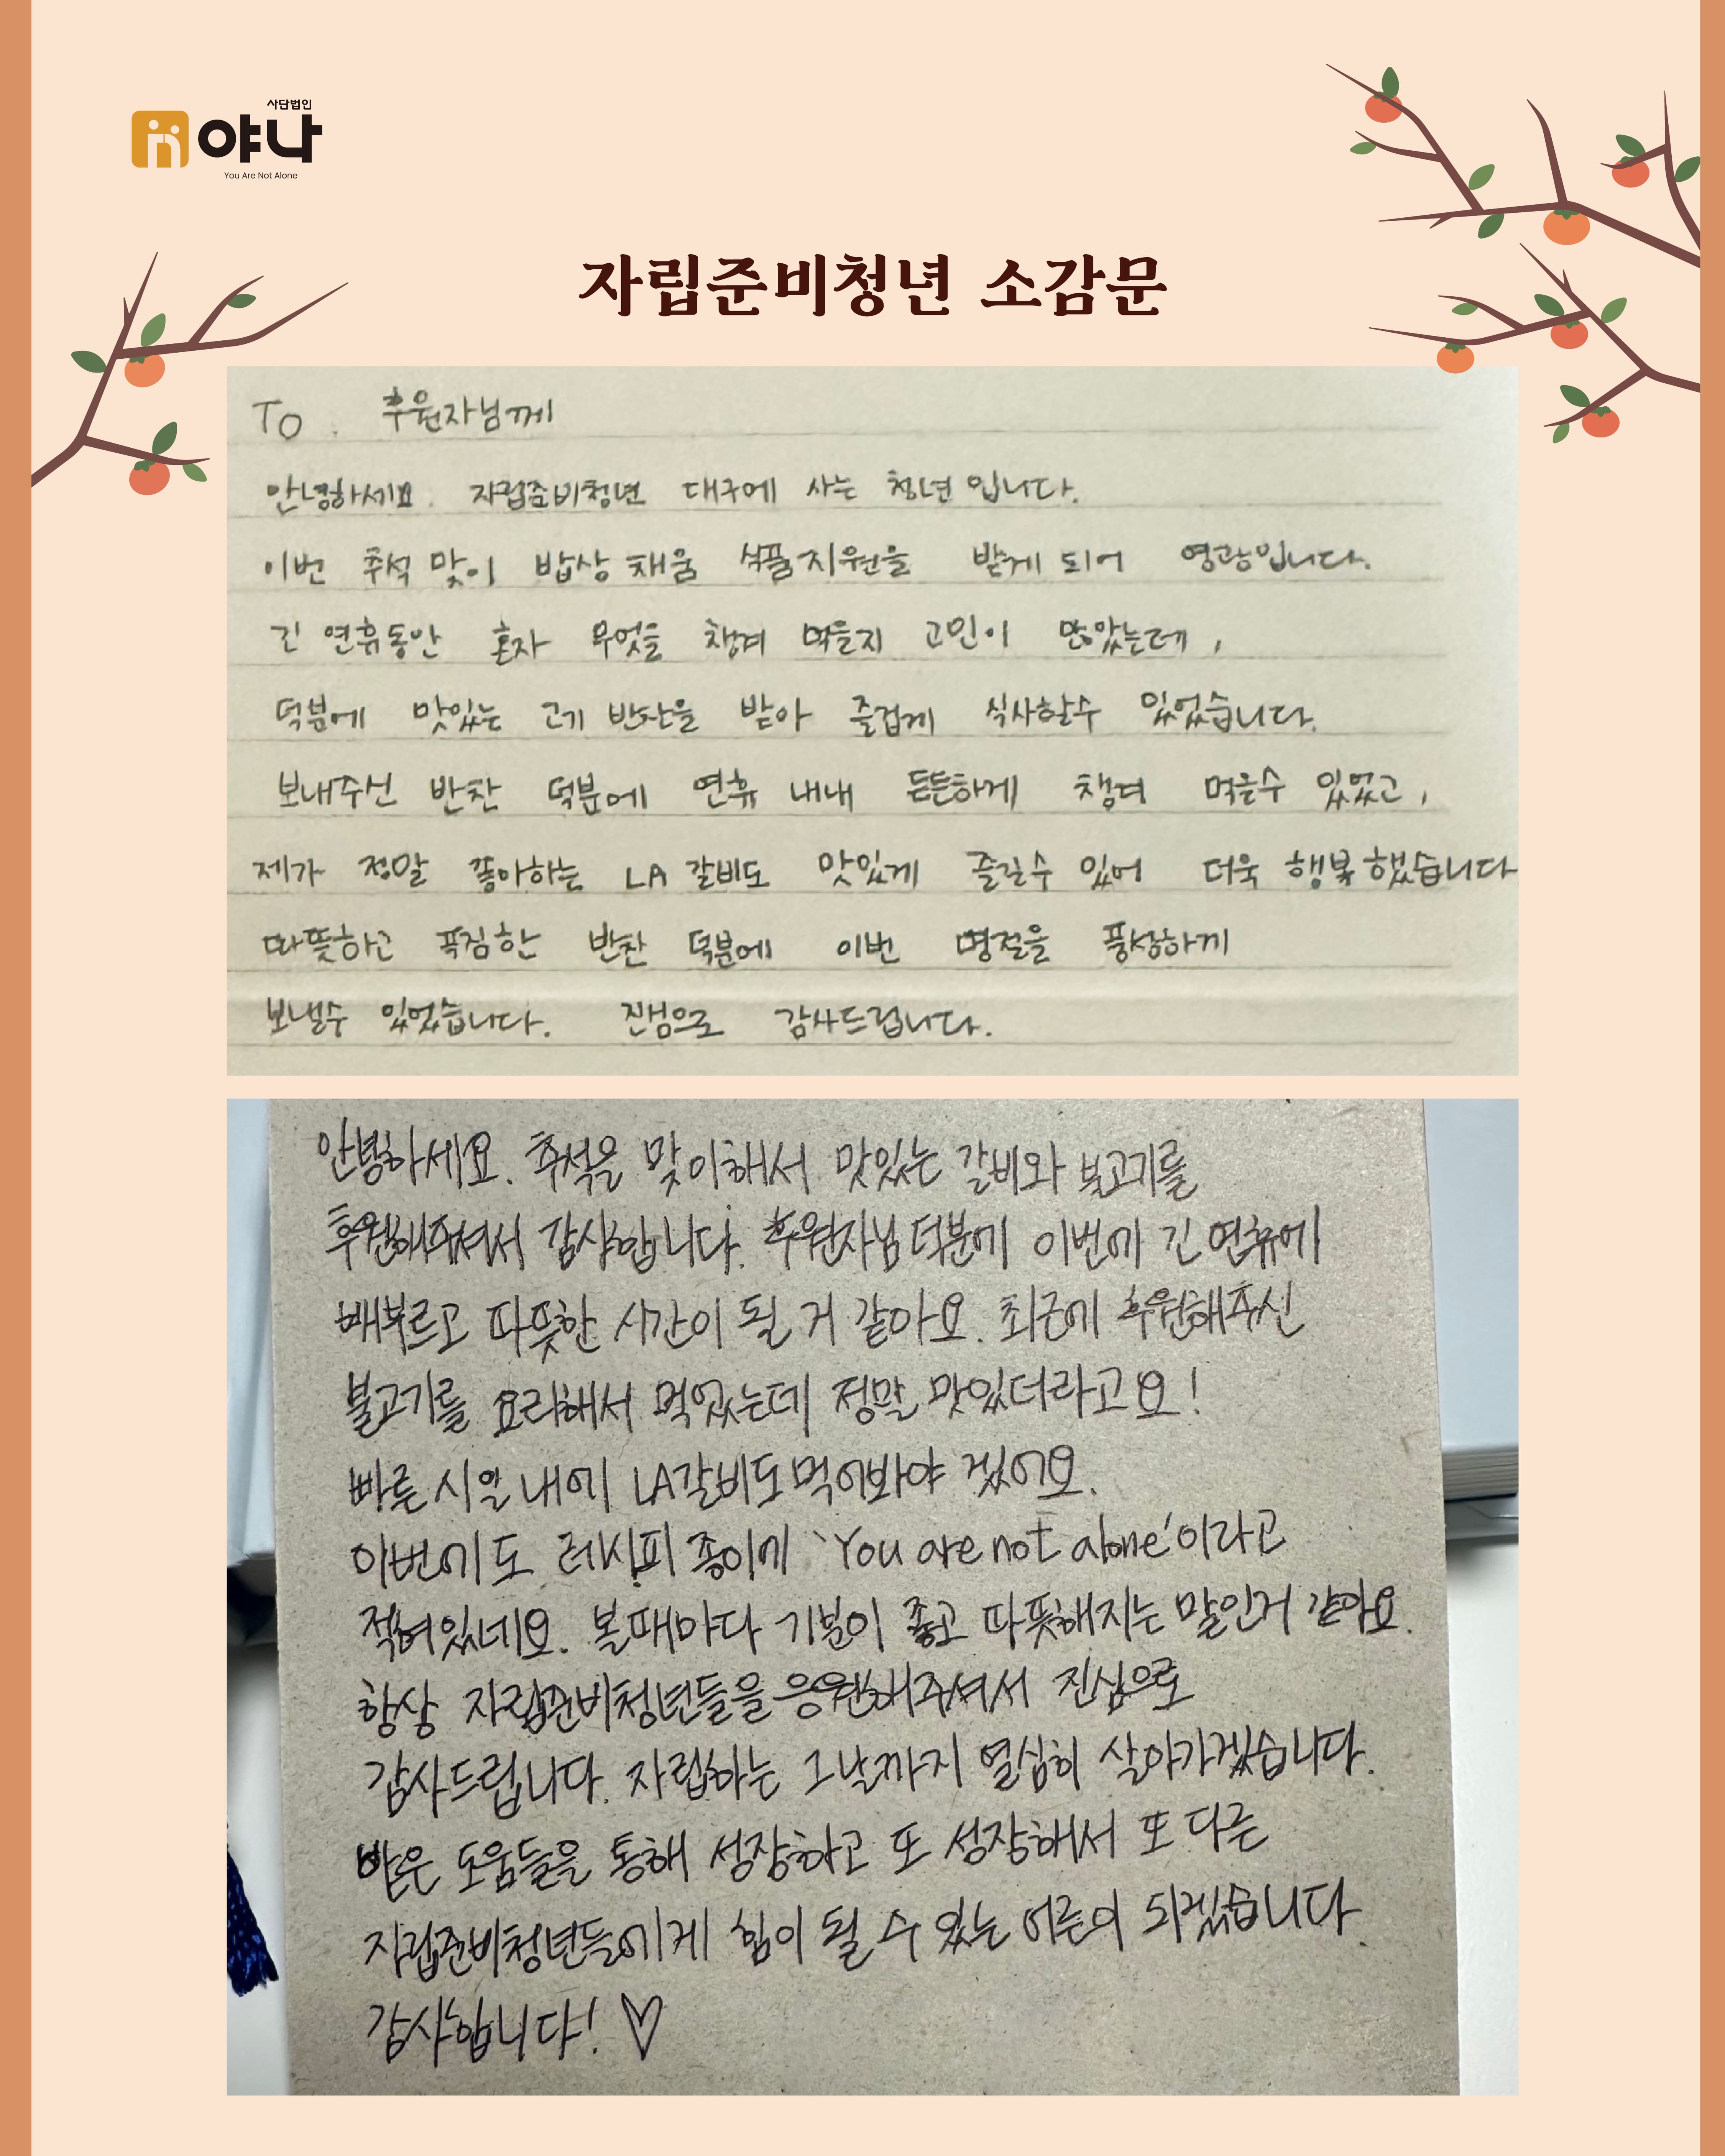 사단법인
야나
You Are Not Alone
자립준비청년 소감문
To. 후원자님께
안녕하세요. 자립준비청년 대구에 사는 청년입니다.
이번 추석 맞이 밥상 채움 식품지원을 받게 되어 영광입니다.
긴 연휴동안 혼자 무엇을 챙겨 먹을지 고민이 많았는데,
덕분에 맛있는 고기 반찬을 받아 즐겁게 식사할수 있었습니다.
보내주신 반찬 덕분에 연휴 내내 든든하게 챙겨 먹을수 있었고,
제가 정말 좋아하는 LA 갈비도 맛있게 즐길수 있어 더욱 행복했습니다
따뜻하고 푹짐한 반찬 덕분에 이번 명절을 풍성하게
보낼수 있었습니다. 진심으로 감사드립니다.
안녕하세요. 추석을 맞이해서 맛있는 갈비와 불고기를
후원해주셔서 감사합니다. 후원자님 덕분에 이번에 긴 연휴에
배부르고 따뜻한 시간이 될 거 같아요. 최근에 후원해주신
불고기를 요리해서 먹었는데 정말 맛있더라고요!
빠른 시일 내에 LA갈비도 먹어봐야 겠어요.
이번에도 레시피 종이에 'You are not alone'이라고
적혀있네요. 볼때마다 기분이 좋고 따뜻해지는 말인거 같아요.
항상 자립준비청년들을 응원해주셔서 진심으로
감사드립니다. 자립하는 그날까지 열심히 살아가겠습니다.
받은 도움들을 통해 성장하고 또 성장해서 또 다른
자립준비청년들에게 힘이 될 수 있는 어른이 되겠습니다.
감사합니다! ♡